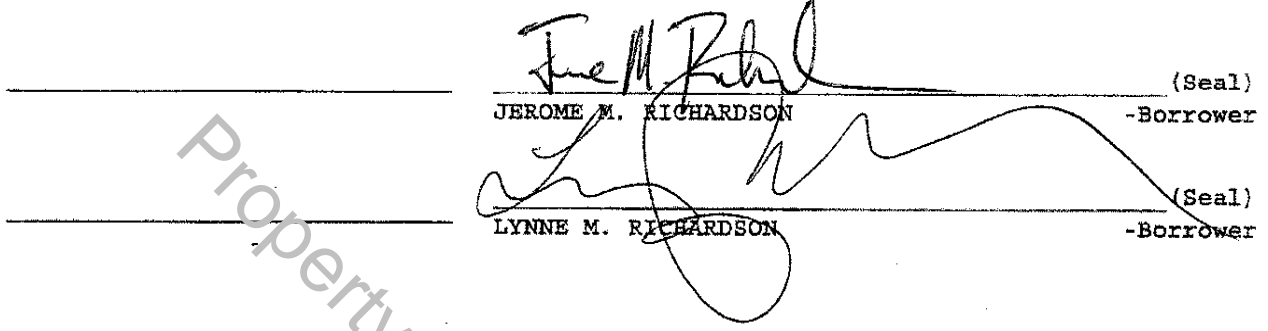 (Seal)
JEROME M. RICHARDSON -Borrower
(Seal)
LYNNE M. RICHARDSON -Borrower
Property